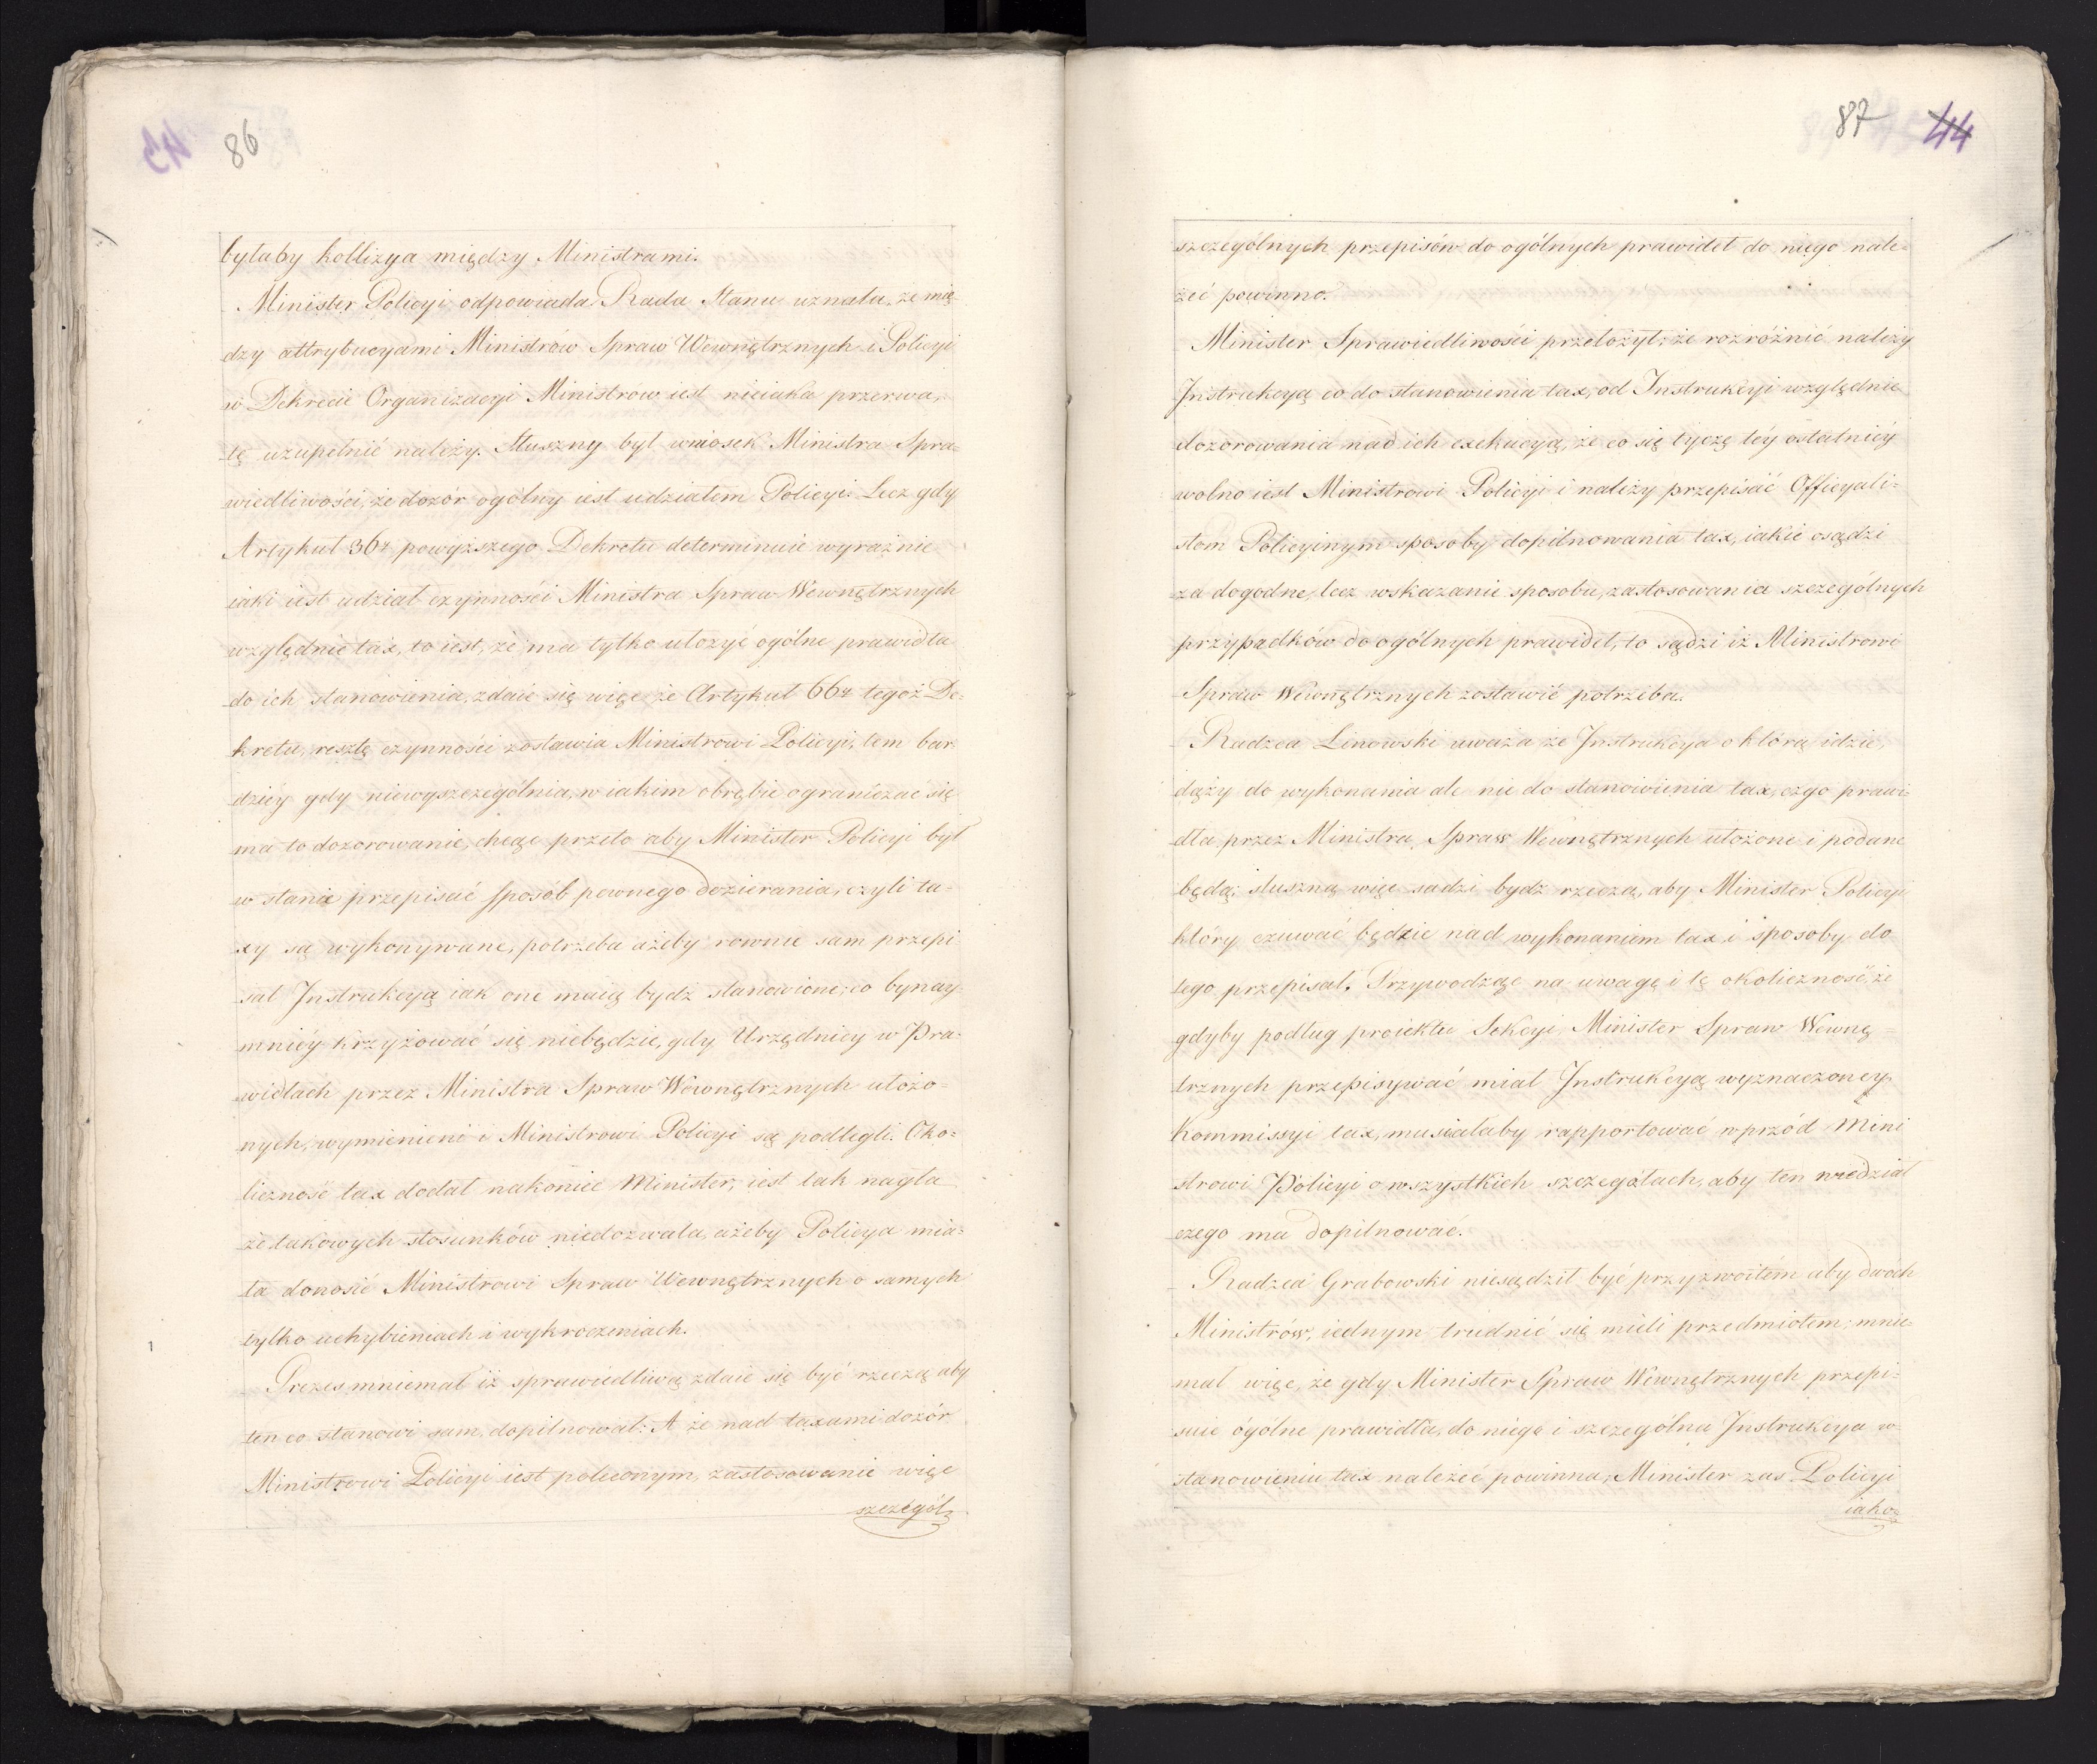 86
byłaby kollizya między Ministrami.
Minister Policyi odpowiada, Rada Stanu uznała, że mię-
dzy attrybucyami Ministrów Spraw Wewnętrznych i Policyi
w Dekrecie Organizacyi Ministrów iest nieiaka przerwa,
tę uzupełnić należy. Słuszny był wniosek Ministra Spra-
wiedliwości, że dozór ogólny iest udziałem Policyi. Lecz gdy
Artykuł 36ty powyższego Dekretu determinuie wyraźnie
iaki iest udział czynności Ministra Spraw Wewnętrznych
względnie tax, to iest, że ma tylko ułożyć ogólne prawidła
do ich stanowienia, zdaie się więc że Artykuł 66ty tegoż De-
kretu, resztę czynności zostawia Ministrowi Policyi, tem bar
dziéy gdy niewyszczególnia, w iakim obrębie ograniczać się
ma to dozorowanie, chcąc przeto aby Minister Policyi był
w stanie przepisać sposób pewnego dozierania, czyli ta-
xy są wykonywane, potrzeba ażeby rownie sam przepi
sał Instrukcyą iak one maią bydź stanowione, co bynay-
mniéy krzyżować się niebędzie, gdy Urzędnicy w Pra-
widłach przez Ministra Spraw Wewnętrznych ułożo-
nych, wymienieni i Ministrowi Policyi są podlegli. Oko-
liczność tax dodał nakoniec Minister, iest tak nagła
że takowych stosunków niedozwala, ażeby Policya mia-
ła donosić Ministrowi Spraw Wewnętrznych o samych
tylko uchybieniach i wykroczeniach.
Prezes mniemał iż sprawiedliwą zdaie się być rzeczą aby
ten co stanowi sam dopilnował: A że nad taxami dozór
Ministrowi Policyi iest poleconym, zastosowanie więc
szczegól-
87 44
szczególnych przepisów do ogólnych prawideł do niego nale-
żeć powinno.
Minister Sprawiedliwości przełożył, że rozróżnić należy
Instrukcyą co do stanowienia tax, od Instrukcyi względnie
dozorowania nad ich exekucyą, że co się tyczę téy ostatniéy
wolno iest Ministrowi Policyi i należy przepisać Officyali-
stom Policyinym sposoby dopilnowania tax, iakie osądzi
za dogodne, lecz wskazanie sposobu, zastosowania szczególnych
przypadków do ogólnych prawideł, to sądzi iż Ministrowi
Spraw Wewnętrznych zostawić potrzeba.
Radzca Linowski uważa że Instrukcya o którą idzie,
dąży do wykonania ale nie do stanowienia tax, czego prawi-
dła przez Ministra Spraw Wewnętrznych ułożone i podane
będą; słuszną więc sądzi bydź rzeczą, aby Minister Policyi
który czuwać będzie nad wykonaniem tax, i sposoby do
tego przepisał. Przywodząc na uwagę i tę okoliczność, że
gdyby podług proiektu Sekcyi, Minister Spraw Wewnę-
trznych przepisywać miał Instrukcyą wyznaczoney
Kommissyi tax, musiałaby rapportować wprzód Mini
strowi Policyi o wszystkich szczegółach, aby ten wiedział
czego ma dopilnować.
Radzca Grabowski niesądził być przyzwoitém aby dwoch
Ministrów, iednym trudnić się mieli przedmiotem; mnie-
mał więc, że gdy Minister Spraw Wewnętrznych przepi-
suie ogólne prawidła, do niego i szczególna Instrukcya w
stanowieniu tax należeć powinna, Minister zas Policyi
iako-